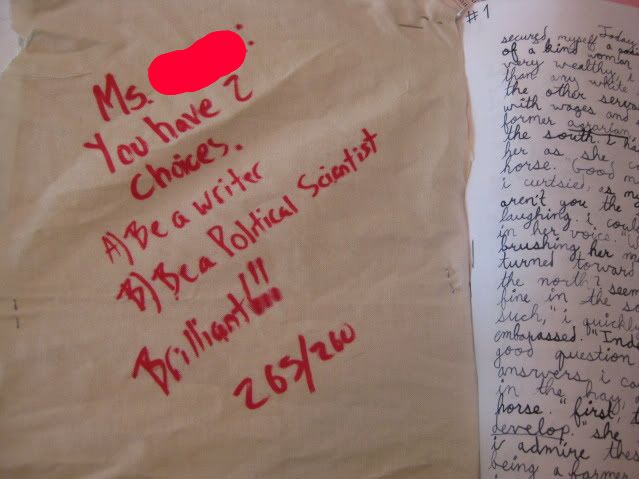 Ms.
You have 2
choices.
A) Be a writer
B) Be a Political Scientist
Brilliant!!!
265/260
#1
Today
secured myself a
of a kind woman
very wealthy,
than any white
the other
with wages and
former agrarian
the south. i
her as she
horse. Good
i curtsied,
aren't you the
laughing. i
in her voice.
brushing her
turned toward
the north?
fine in the
such," i
embarassed.
good question
answers, i
in the hay,
horse. "first,
develop." she
i admire
being a